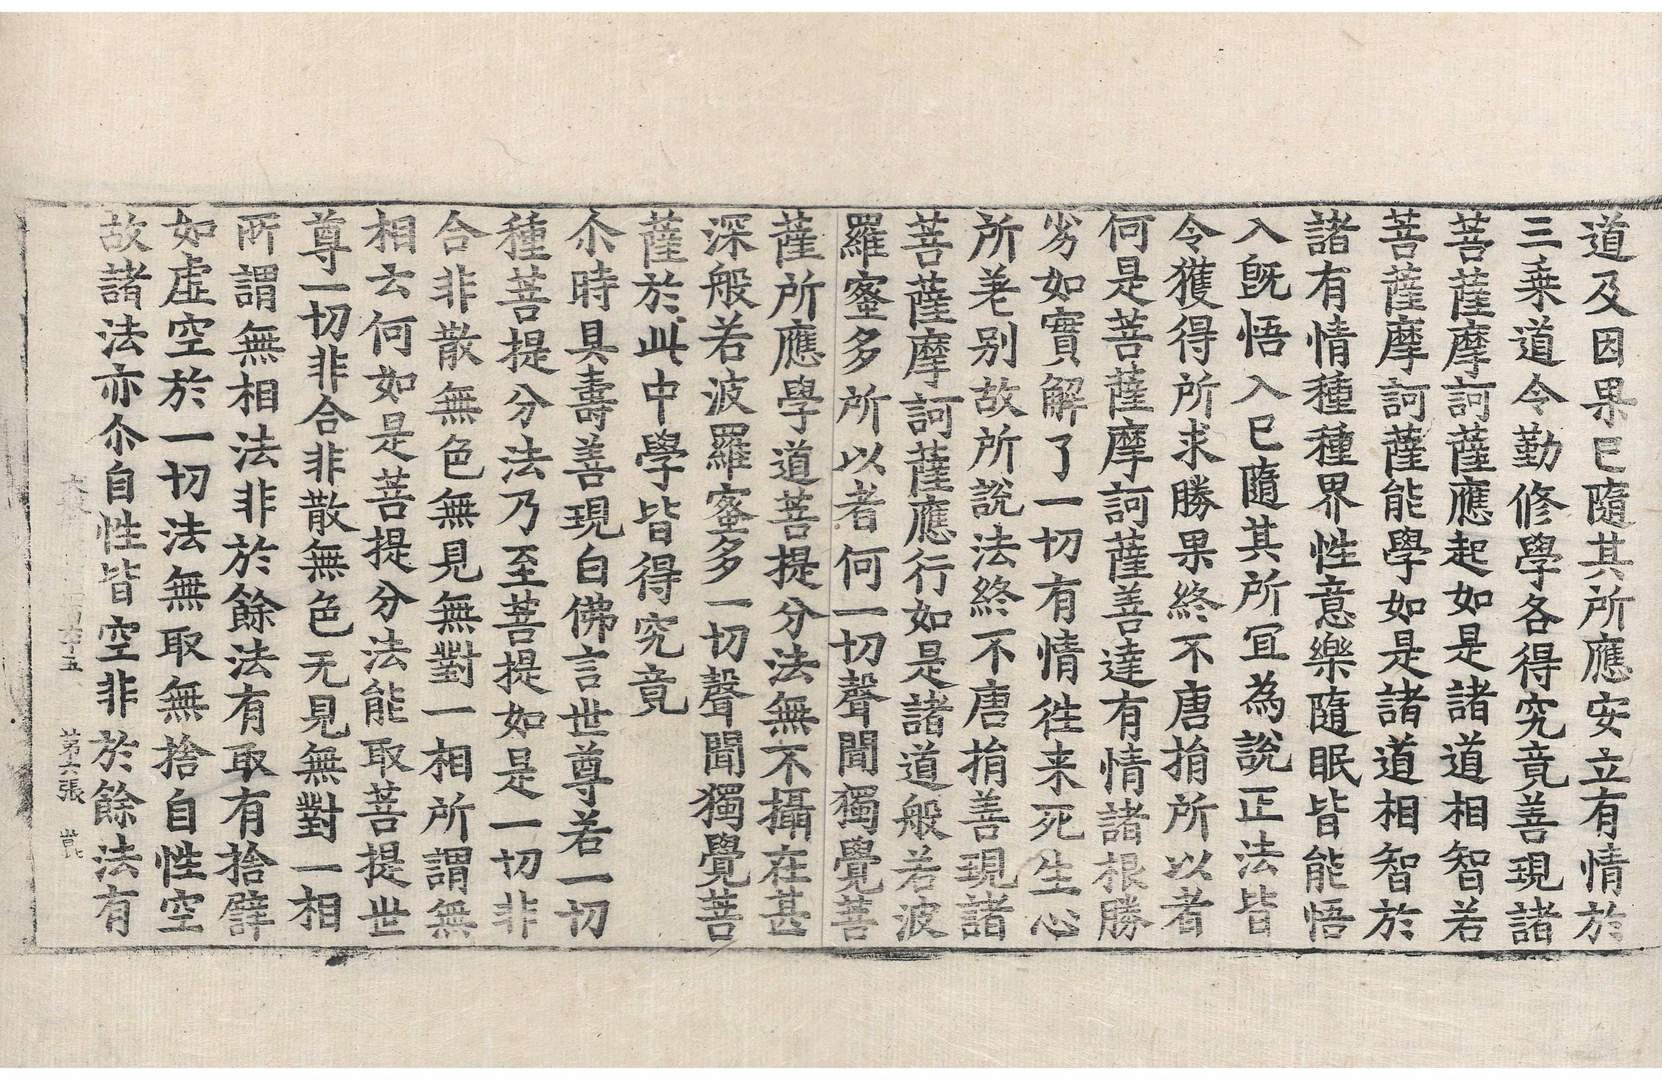 道及因果已隨其所應安立有情於
三乗道令勤修學各得究竟善現諸
菩薩摩訶薩應起如是諸道相智若
菩薩摩訶薩能學如是諸道相智於
諸有情種種界性意樂隨眠皆能悟
入旣悟入已隨其所冝為說正法皆
令獲得所求勝果終不唐捐所以者
何是菩薩摩訶薩善達有情諸根勝
劣如實解了一切有情徃来死生心
所差别故所說法終不唐捐善現諸
菩薩摩訶薩應行如是諸道般若波
羅蜜多所以者何一切聲聞獨覺菩
薩所應學道菩提分法無不攝在甚
深般若波羅蜜多一切聲聞獨覺菩
薩於此中學皆得究竟
尒時具壽善現白佛言世尊若一切
種菩提分法乃至菩提如是一切非
合非散無色無見無對一相所謂無
相云何如是菩提分法能取菩提世
尊一切非合非散無色无見無對一相
所謂無相法非於餘法有取有捨譬
如虛空於一切法無取無捨自性空
故諸法亦尒自性皆空非於餘法有
六十五 第六張 崑